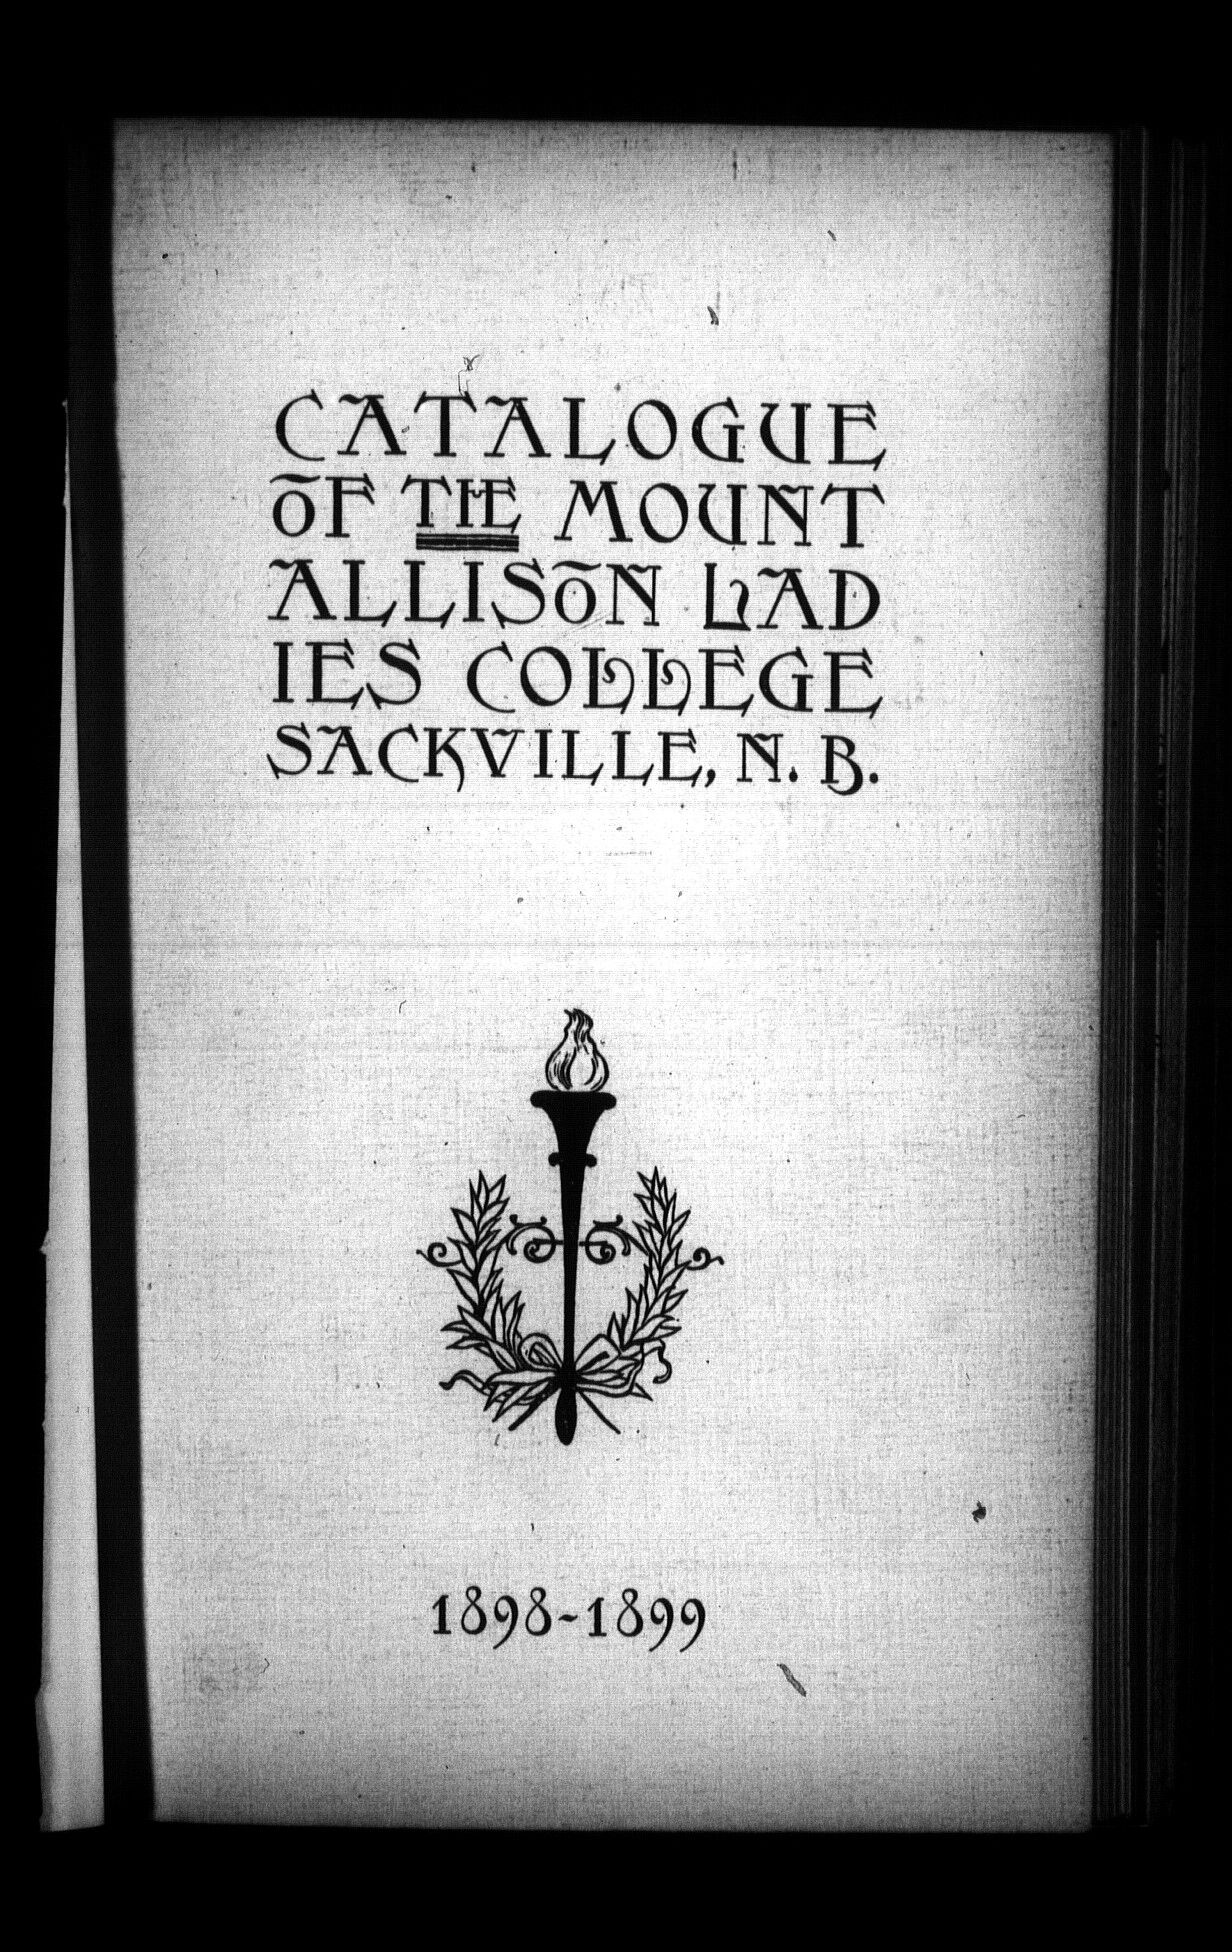 CATALOGUE
OF THE MOUNT
ALLISON LAD
IES COLLEGE
SACKVILLE, N. B.
1898-1899